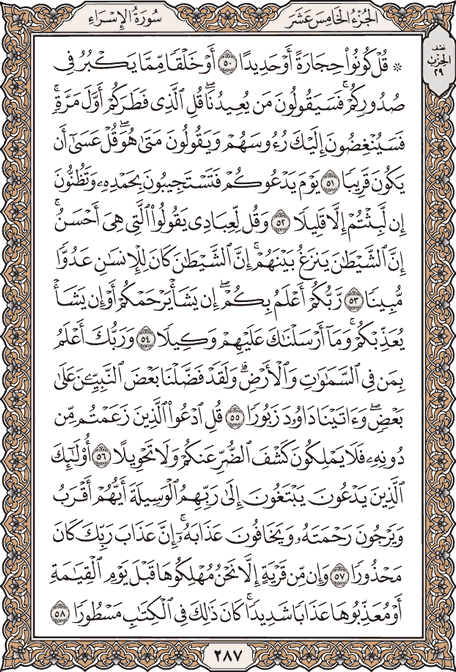 الجزء الخامس عشر
سورة الإسراء
نصف
الحزب
٢٩
۞ قُلْ كُونُوا۟ حِجَارَةً أَوْ حَدِيدًا ۝٥٠ أَوْ خَلْقًا مِّمَّا يَكْبُرُ فِى
صُدُورِكُمْ ۚ فَسَيَقُولُونَ مَن يُعِيدُنَا ۖ قُلِ ٱلَّذِى فَطَرَكُمْ أَوَّلَ مَرَّةٍ ۚ
فَسَيُنْغِضُونَ إِلَيْكَ رُءُوسَهُمْ وَيَقُولُونَ مَتَىٰ هُوَ ۖ قُلْ عَسَىٰٓ أَن
يَكُونَ قَرِيبًا ۝٥١ يَوْمَ يَدْعُوكُمْ فَتَسْتَجِيبُونَ بِحَمْدِهِۦ وَتَظُنُّونَ
إِن لَّبِثْتُمْ إِلَّا قَلِيلًا ۝٥٢ وَقُل لِّعِبَادِى يَقُولُوا۟ ٱلَّتِى هِىَ أَحْسَنُ ۚ
إِنَّ ٱلشَّيْطَٰنَ يَنزَغُ بَيْنَهُمْ ۚ إِنَّ ٱلشَّيْطَٰنَ كَانَ لِلْإِنسَٰنِ عَدُوًّا
مُّبِينًا ۝٥٣ رَّبُّكُمْ أَعْلَمُ بِكُمْ ۖ إِن يَشَأْ يَرْحَمْكُمْ أَوْ إِن يَشَأْ
يُعَذِّبْكُمْ ۚ وَمَآ أَرْسَلْنَٰكَ عَلَيْهِمْ وَكِيلًا ۝٥٤ وَرَبُّكَ أَعْلَمُ
بِمَن فِى ٱلسَّمَٰوَٰتِ وَٱلْأَرْضِ ۗ وَلَقَدْ فَضَّلْنَا بَعْضَ ٱلنَّبِيِّـۧنَ عَلَىٰ
بَعْضٍ ۖ وَءَاتَيْنَا دَاوُۥدَ زَبُورًا ۝٥٥ قُلِ ٱدْعُوا۟ ٱلَّذِينَ زَعَمْتُم مِّن
دُونِهِۦ فَلَا يَمْلِكُونَ كَشْفَ ٱلضُّرِّ عَنكُمْ وَلَا تَحْوِيلًا ۝٥٦ أُو۟لَٰٓئِكَ
ٱلَّذِينَ يَدْعُونَ يَبْتَغُونَ إِلَىٰ رَبِّهِمُ ٱلْوَسِيلَةَ أَيُّهُمْ أَقْرَبُ
وَيَرْجُونَ رَحْمَتَهُۥ وَيَخَافُونَ عَذَابَهُۥٓ ۚ إِنَّ عَذَابَ رَبِّكَ كَانَ
مَحْذُورًا ۝٥٧ وَإِن مِّن قَرْيَةٍ إِلَّا نَحْنُ مُهْلِكُوهَا قَبْلَ يَوْمِ ٱلْقِيَٰمَةِ
أَوْ مُعَذِّبُوهَا عَذَابًا شَدِيدًا ۚ كَانَ ذَٰلِكَ فِى ٱلْكِتَٰبِ مَسْطُورًا ۝٥٨
٢٨٧